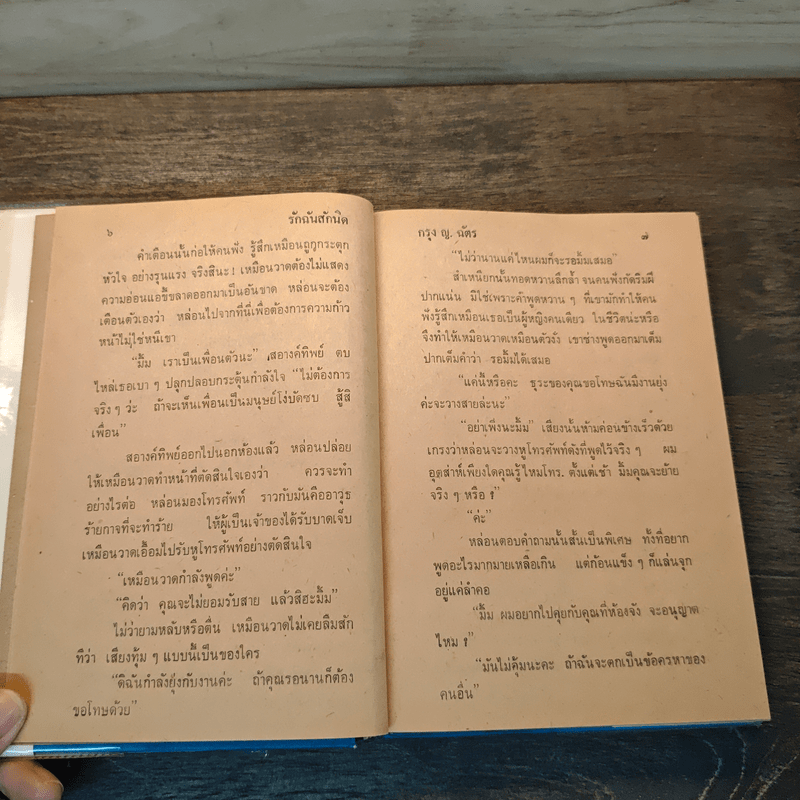 ๖ รักฉันสักนิด
คำเตือนนั้นก่อให้คนฟัง รู้สึกเหมือนถูกกระตุก
หัวใจ อย่างรุนแรง จริงสินะ! เหมือนวาดต้องไม่แสดง
ความอ่อนแอขี้ขลาดออกมาเป็นอันขาด หล่อนจะต้อง
เตือนตัวเองว่า หล่อนไปจากที่นี่เพื่อต้องการความก้าว
หน้าไม่ใช่หนีเขา
“มิ้ม เราเป็นเพื่อนตัวนะ” สอางค์ทิพย์ ตบ
ไหล่เธอเบา ๆ ปลุกปลอบกระตุ้นกำลังใจ “ไม่ต้องการ
จริง ๆ ว่ะ ถ้าจะเห็นเพื่อนเป็นมนุษย์โง่บัดซบ สู้สิ
เพื่อน”
สอางค์ทิพย์ออกไปนอกห้องแล้ว หล่อนปล่อย
ให้เหมือนวาดทำหน้าที่ตัดสินใจเองว่า ควรจะทำ
อย่างไรต่อ หล่อนมองโทรศัพท์ ราวกับมันคืออาวุธ
ร้ายกาจที่จะทำร้าย ให้ผู้เป็นเจ้าของได้รับบาดเจ็บ
เหมือนวาดเอื้อมไปรับหูโทรศัพท์อย่างตัดสินใจ
“เหมือนวาดกำลังพูดค่ะ”
“คิดว่า คุณจะไม่ยอมรับสาย แล้วสิฮะมิ้ม”
ไม่ว่ายามหลับหรือตื่น เหมือนวาดไม่เคยลืมสัก
ทีว่า เสียงทุ้ม ๆ แบบนี้เป็นของใคร
“ดิฉันกำลังยุ่งกับงานค่ะ ถ้าคุณรอนานก็ต้อง
ขอโทษด้วย”
กรุง ญ. ฉัตร ๗
“ไม่ว่านานแค่ไหนผมก็จะรอมิ้มเสมอ”
สำเนียกนั้นทอดหวานลึกล้ำ จนคนฟังกัดริมฝี
ปากแน่น มิใช่เพราะคำพูดหวาน ๆ ที่เขามักทำให้คน
ฟังรู้สึกเหมือนเธอเป็นผู้หญิงคนเดียว ในชีวิตน่ะหรือ
จึงทำให้เหมือนวาดเหมือนตัวงั่ง เขาช่างพูดออกมาเต็ม
ปากเต็มคำว่า รอมิ้มได้เสมอ
“แค่นี้หรือคะ ธุระของคุณขอโทษฉันมีงานยุ่ง
ค่ะจะวางสายล่ะนะ”
“อย่าเพิ่งนะมิ้ม” เสียงนั้นห้ามค่อนข้างเร็วด้วย
เกรงว่าหล่อนจะวางหูโทรศัพท์ดังที่พูดไว้จริง ๆ ผม
อุตส่าห์เพียงใดคุณรู้ไหมโทร. ตั้งแต่เช้า มิ้มคุณจะย้าย
จริง ๆ หรือ ?”
“ค่ะ”
หล่อนตอบคำถามนั้นสั้นเป็นพิเศษ ทั้งที่อยาก
พูดอะไรมากมายเหลือเกิน แต่ก้อนแข็ง ๆ ก็แล่นจุก
อยู่แค่ลำคอ
“มิ้ม ผมอยากไปคุยกับคุณที่ห้องจัง จะอนุญาต
ไหม ?”
“มันไม่คุ้มนะคะ ถ้าฉันจะตกเป็นข้อครหาของ
คนอื่น”